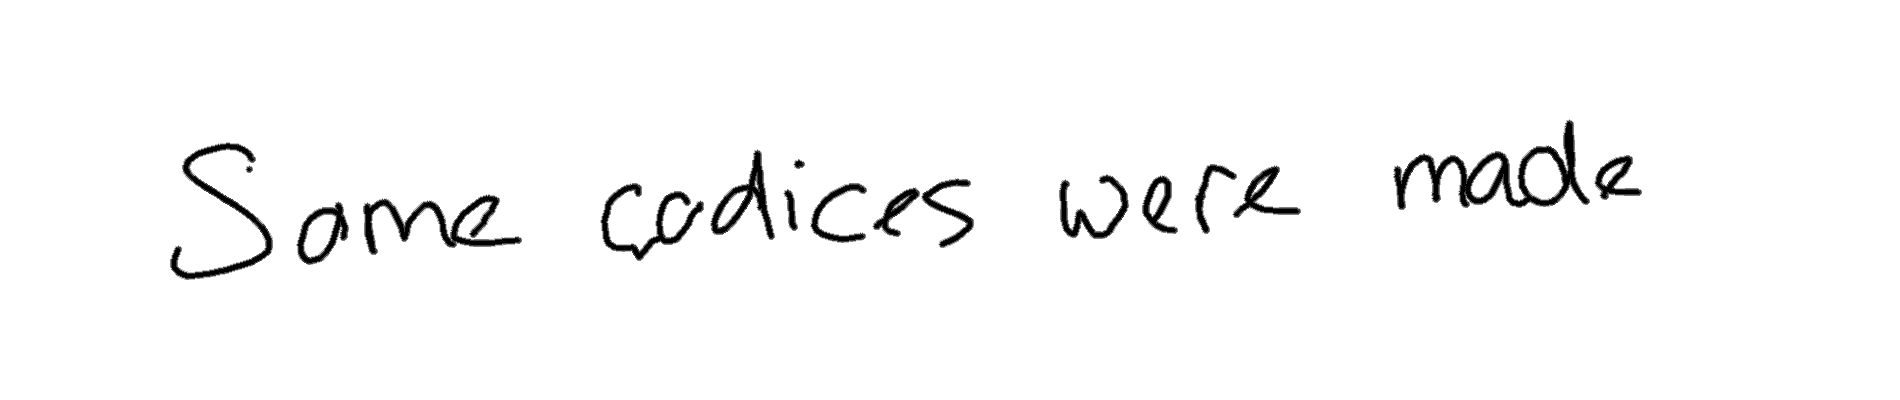 Some codices were made